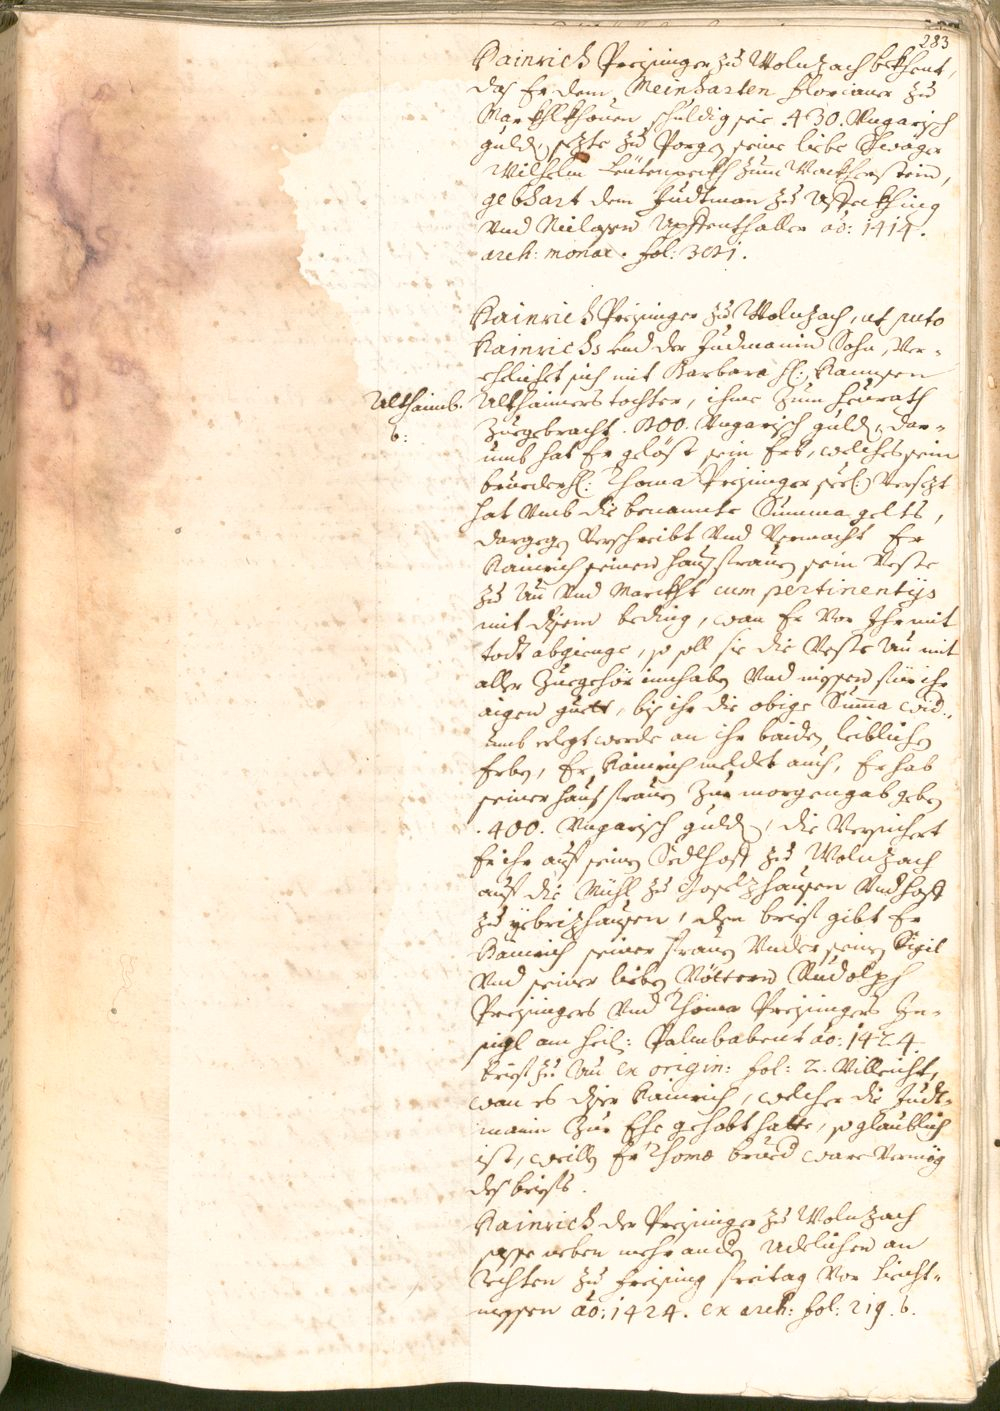 283
Hainrich Preisinger zu Wolnzach bekhent,
das Er dem Meinharten florianer zu
Marckhlkhouen schuldig sei .430. Ungarisch
guld, sezte zu Porgen seine liebe Schwäger
Wilhelm zum Wackherstein,
gebhart dem Judtman zu Affeckhing
Und ao: 1414.
arch: monac. fol:
Hainrich Preisinger zu Wolnzach, ut puto
Hainrichs und der Judmanin Sohn, Ver-
ehlichet sich mit Barbara H: Hannsen
Althaimb. Althaimers tochter, ihme zum heurath
6: zuegebracht . 800. Ungarisch guld, dar-
umb hat Er gelöst sein Erb, welches sein
brueder H: Thoma Preisinger seel: Versezt
hat Umb die benannte Summa gelts,
dargegen Verschreibt Und Vermacht Er
Hainrich seiner haussfrauen sein Vesste
zu Au Und Marckht cum pertinentijs
mit disem beding, wan Er Vor Ihr mit
todt abgienge, so soll sie die Vesste Au mit
aller Zuegehör innhaben Und niessen für ihr
aigen guett, bis ihr die obige Summa wid.,
umb erlegt werde an ihr baiden leiblichen
Erben, Er Hainrich meldet auch, Er hab
seiner haussfrauen Zur morgengab geben
. 400. Ungarisch guld, die Versichert
Er ihr auf seinen Sedlhoff zu Wolnzach
auf die Mühl zu Gosseltzhausen Und hoff
zu gebrizhausen, den brieff gibt Er
Hainrich seiner frauen Under seinen Sigil
Und seiner lieben Vöttern Rudolph
Preisingers Und Thoma Preisingers In-
sigl am heil: Palmbabent ao: 1424.
brieff zu Au ex origin: fol: 2. Villeicht,
wan es diser Hainrich, welcher die Judt-
manin Zur Ehe gehabt hatte, so glaublich
ist, weillen Er Thomæ brued ware Vermög
des brieffs.
Hainrich der Preisinger zu Wolnzach
sasse neben mehr anden Adelichen an
Rechten zu freising freitag Vor liecht-
messen ao: 1424. ex arch: fol: 219. 6.